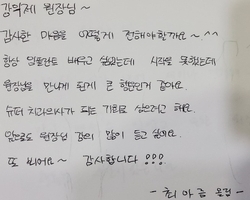 강익제 원장님~
감사한 마음을 어떻게 전해야할까요~^^
항상 임플란트 배우고 싶었는데 시작을 못했는데
원장님을 만나게 된게 큰 행운인거 같아요.
슈퍼 치과의사가 되는 기회로 삼으려고 해요.
앞으로도 원장님 강의 많이 듣고 싶어요.
또 뵈어요~ 감사합니다!!!
- 최마음 올림 -